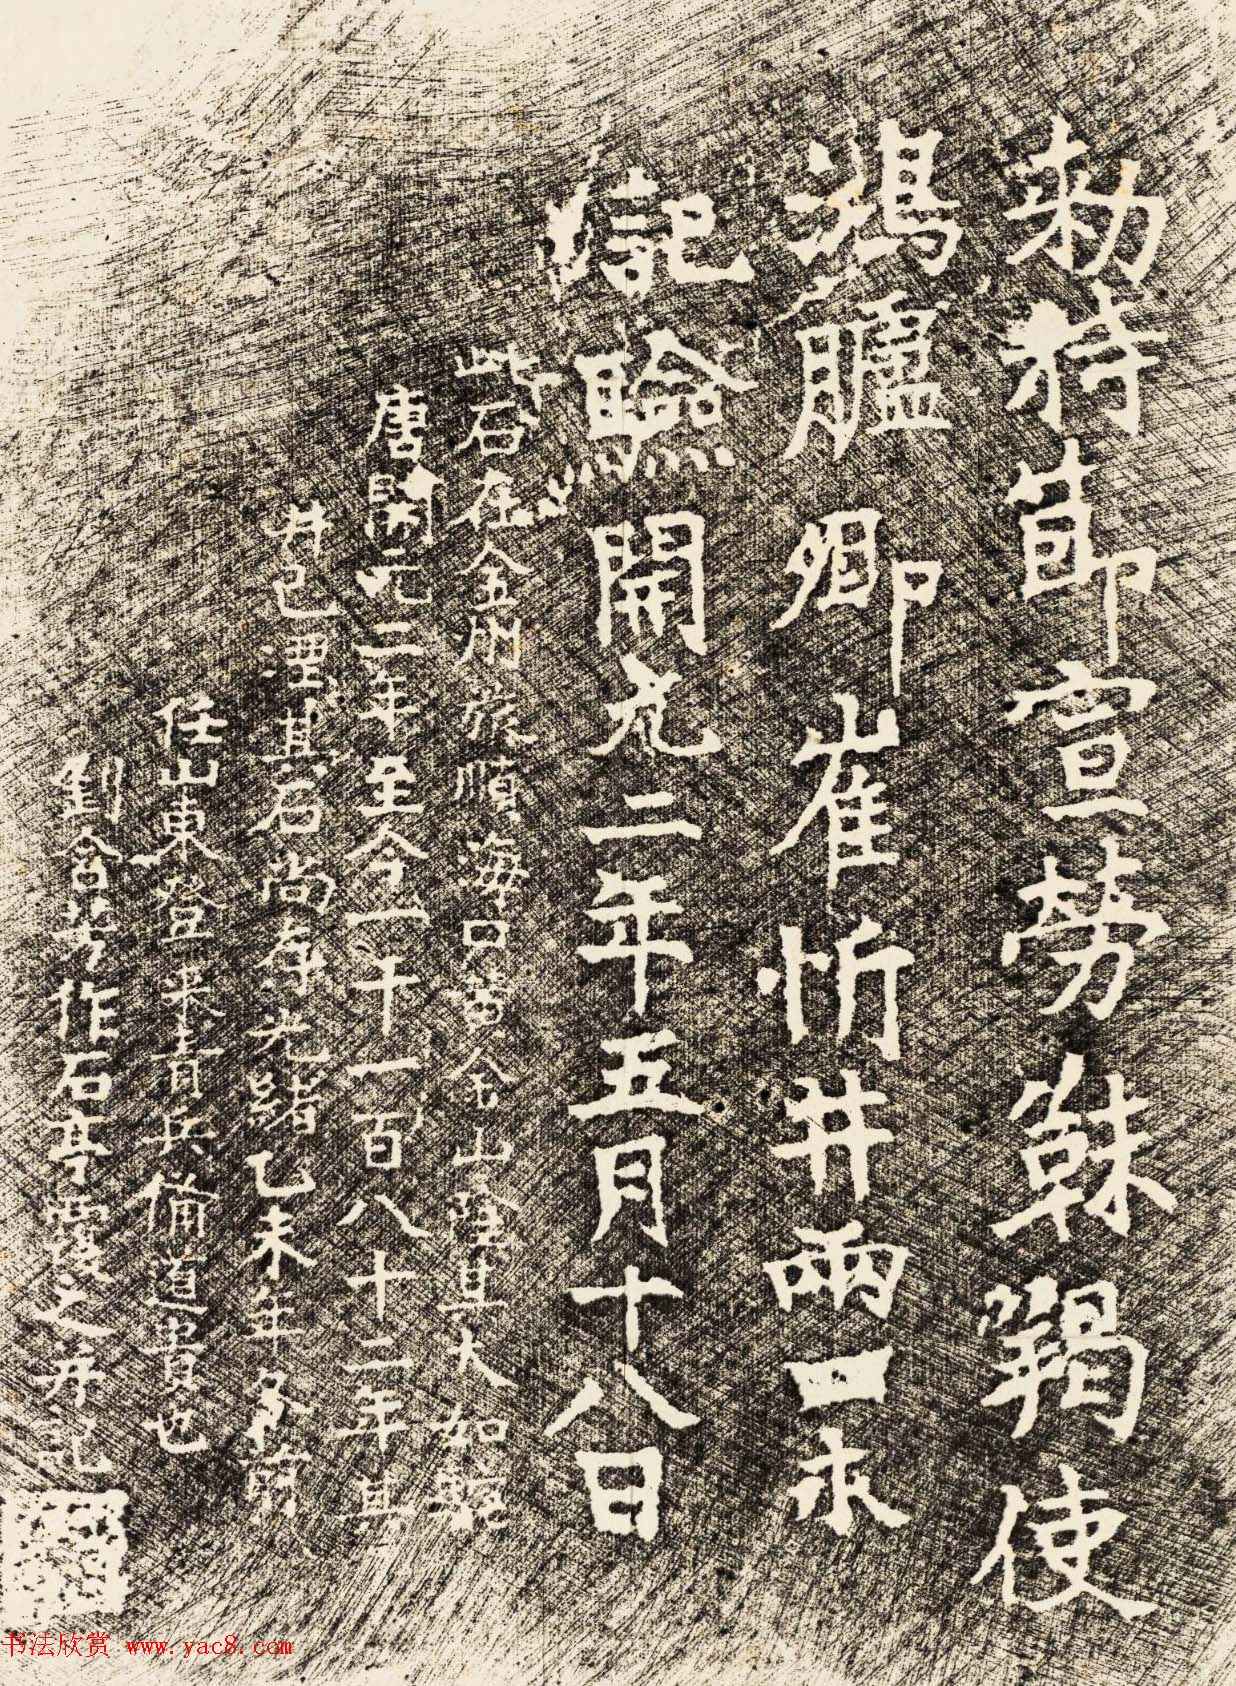 敕持節宣勞靺羯使
鴻臚卿崔忻井兩口永
記驗開元二年五月十八日
此石在金州旅順海口黃金山陰其大如駞
唐開元二年至今一千一百八十二年其
井已湮其石尚存光緒乙未年冬前
任山東登萊青兵備道貴池
劉含芳作石亭覆之并記
书法欣赏 www.yac8.com